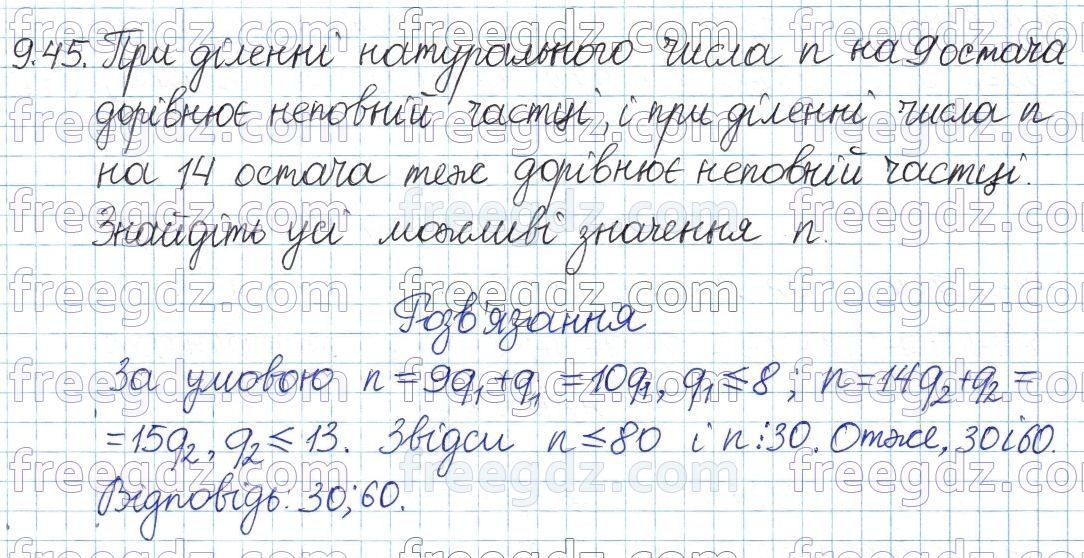 9.45. При діленні натурального числа n на 9 остача
дорівнює неповній частці, і при діленні числа n
на 14 остача теж дорівнює неповній частці.
Знайдіть усі можливі значення n.
Розв'язання
За умовою n = 9q₁+q₁ = 10q₁, q₁ ≤ 8; n = 14q₂+q₂ =
= 15q₂, q₂ ≤ 13. Звідси n ≤ 80 і n⋮30. Отже, 30 і 60.
Відповідь: 30; 60.
freegdz.com